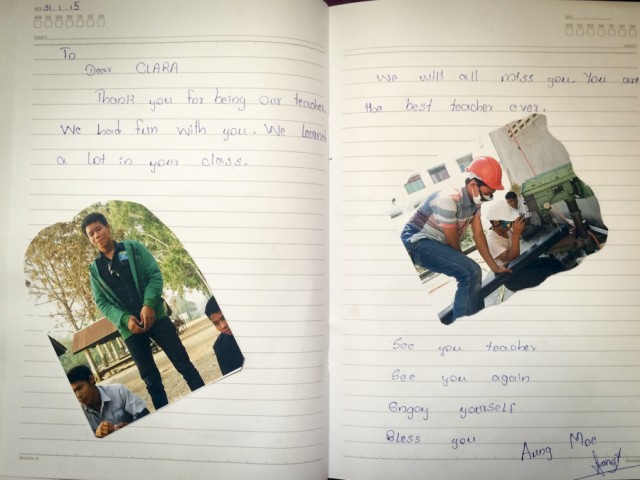 31.1.15
To
Dear CLARA
Thank you for being our teacher
We had fun with you. We learned
a lot in your class.
We will all miss you. You are
the best teacher ever.
See you teacher
See you again
Enjoy yourself
Bless you
Aung Moe